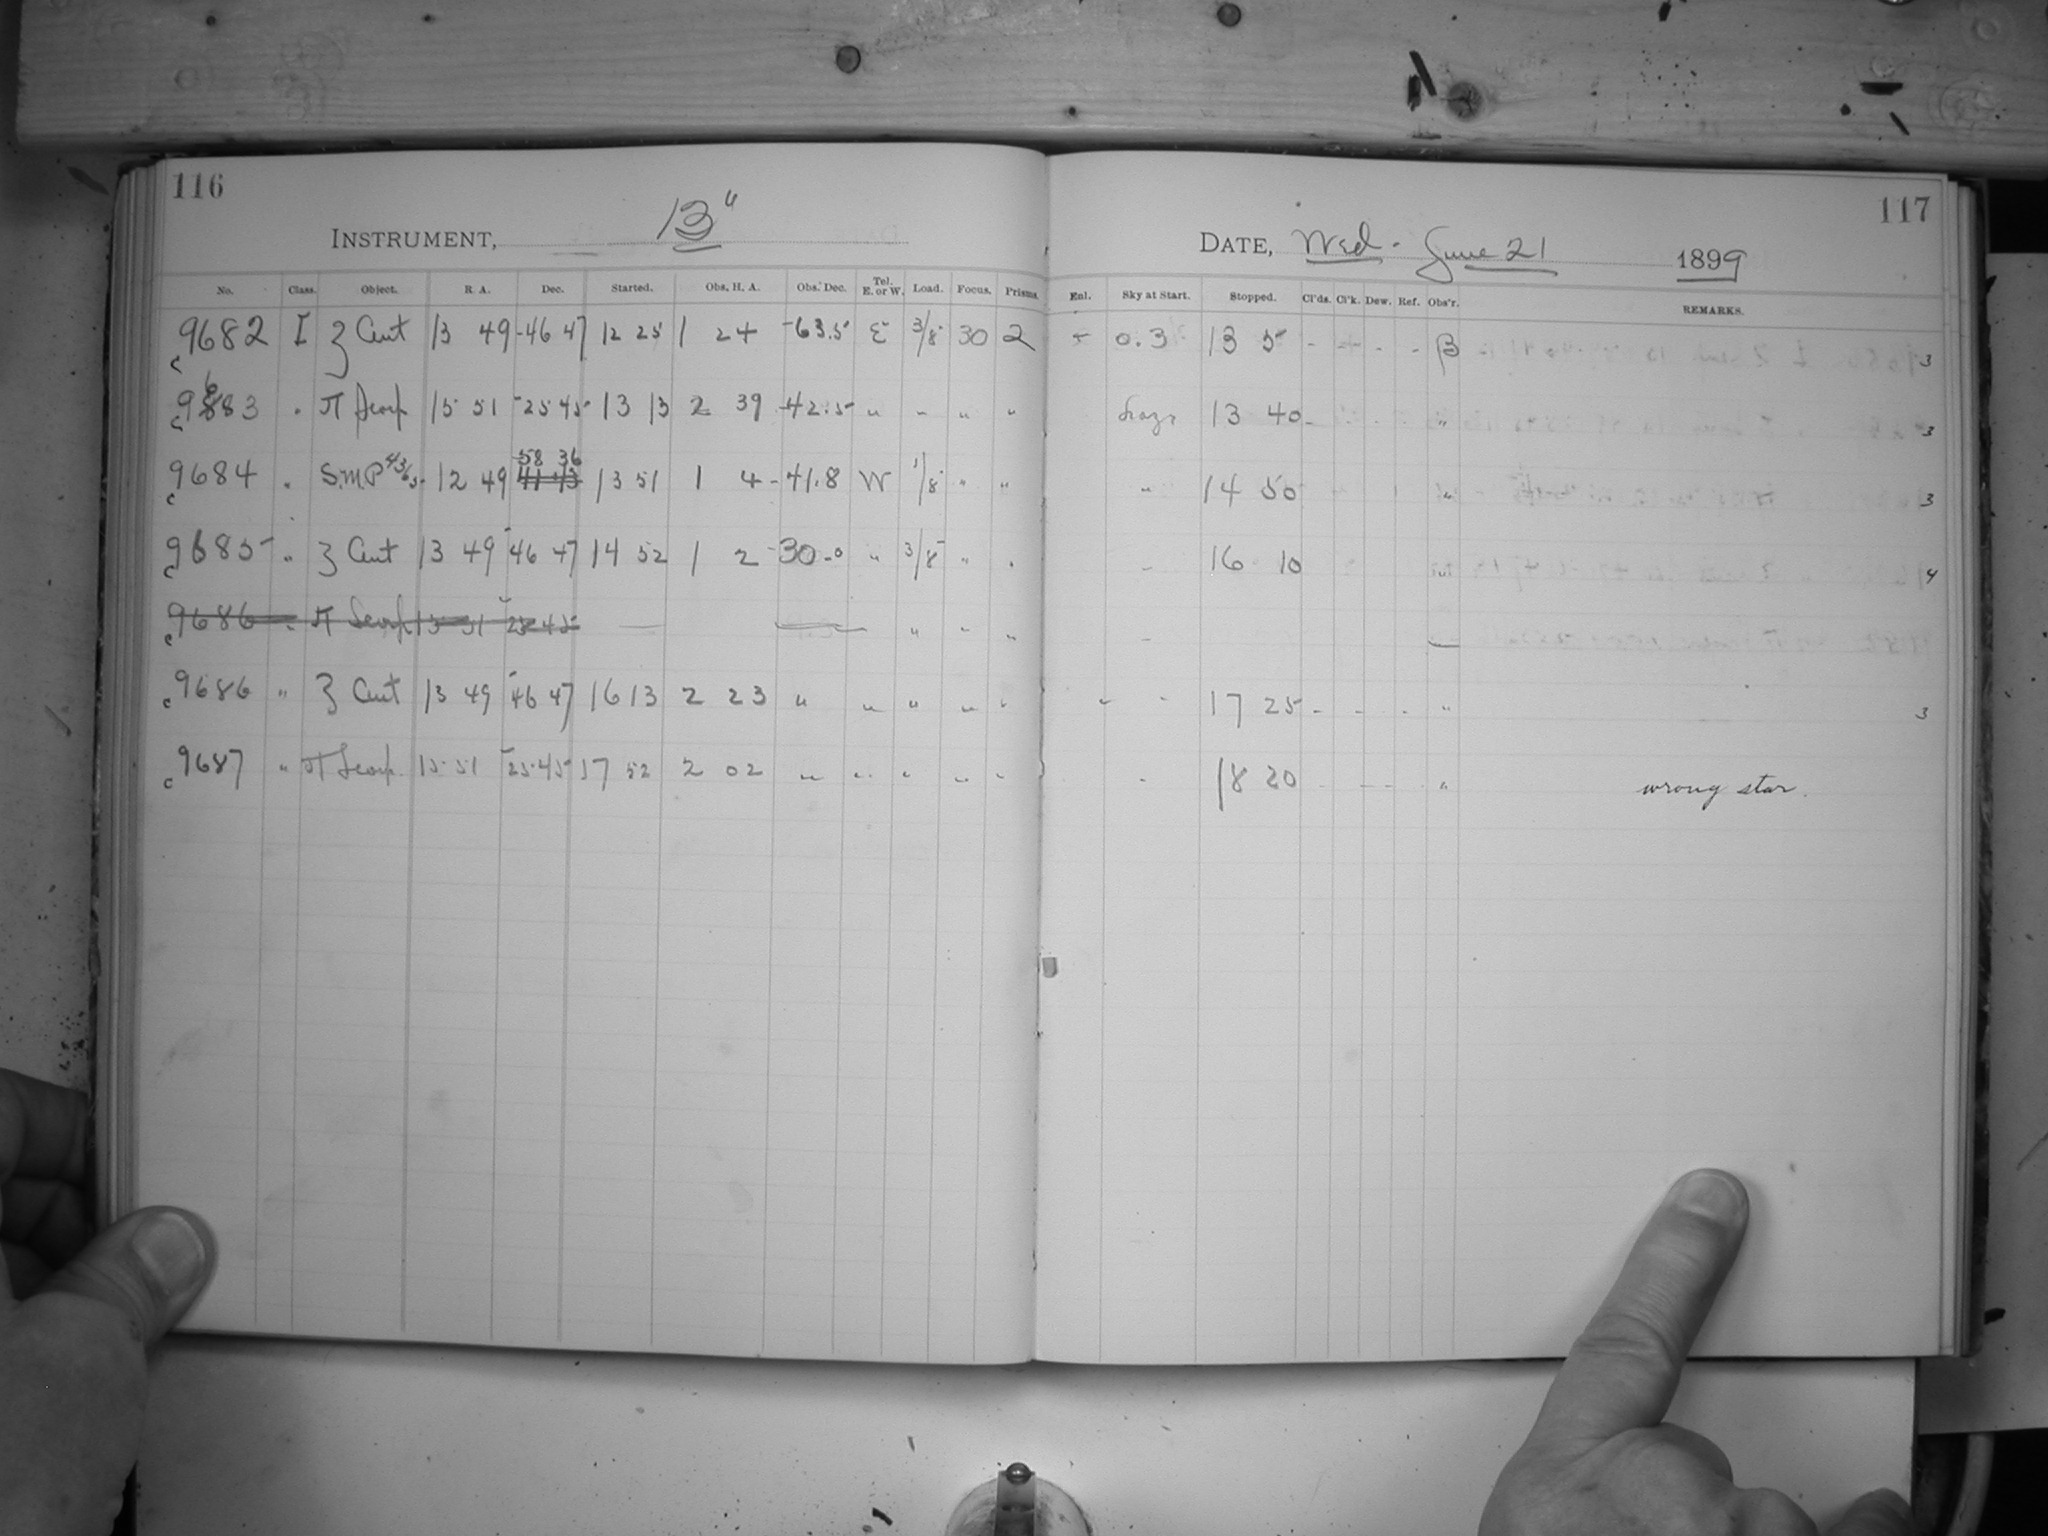 116
INSTRUMENT, 13"
No. Class. Object. R. A. Dec. Started. Obs. H. A. Obs. Dec. Tel. E. or W. Load. Focus. Prisms.
c 9682 I ʒ Cent 13 49 -46 47 12 25 1 24 -63.5 E 3/8 30 2
c 9683 " π Scorp 15 51 -25 45 13 13 2 39 -42.5 " " " "
c 9684 " S.M.P 12 49 -58 36 13 51 1 4 -41.8 W 1/8 " "
c 9685 " ʒ Cent 13 49 -46 47 14 52 1 2 -30.0 " 3/8 " "
c 9686 " π Scorp 15 51 -25 45 — — " " "
c 9686 " ʒ Cent 13 49 -46 47 16 13 2 23 " " " " "
c 9687 " π Scorp. 15 51 -25 45 17 52 2 02 " " " " "
117
DATE, Wed. June 21 1899
Enl. Sky at Start. Stopped. Cl'ds. Cl'k. Dew. Ref. Obs'r. REMARKS.
0.3 13 5 - - - - β 3
hazy 13 40 - " 3
" 14 50 " 3
" 16 10 " 4
" —
" " 17 25 - - - " 3
" 18 20 - - - " wrong star.